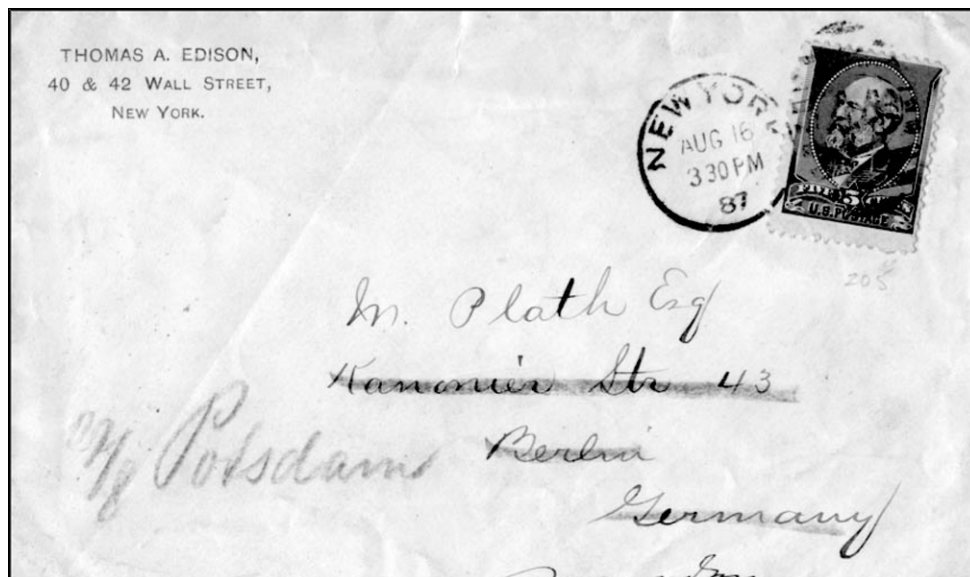 THOMAS A. EDISON,
40 & 42 WALL STREET,
NEW YORK.
NEW YORK
AUG 16
3 30 PM
87
5
U.S. POSTAGE
205
M. Plath Esq
Kanonier Str 43
Potsdam
Berlin
Germany